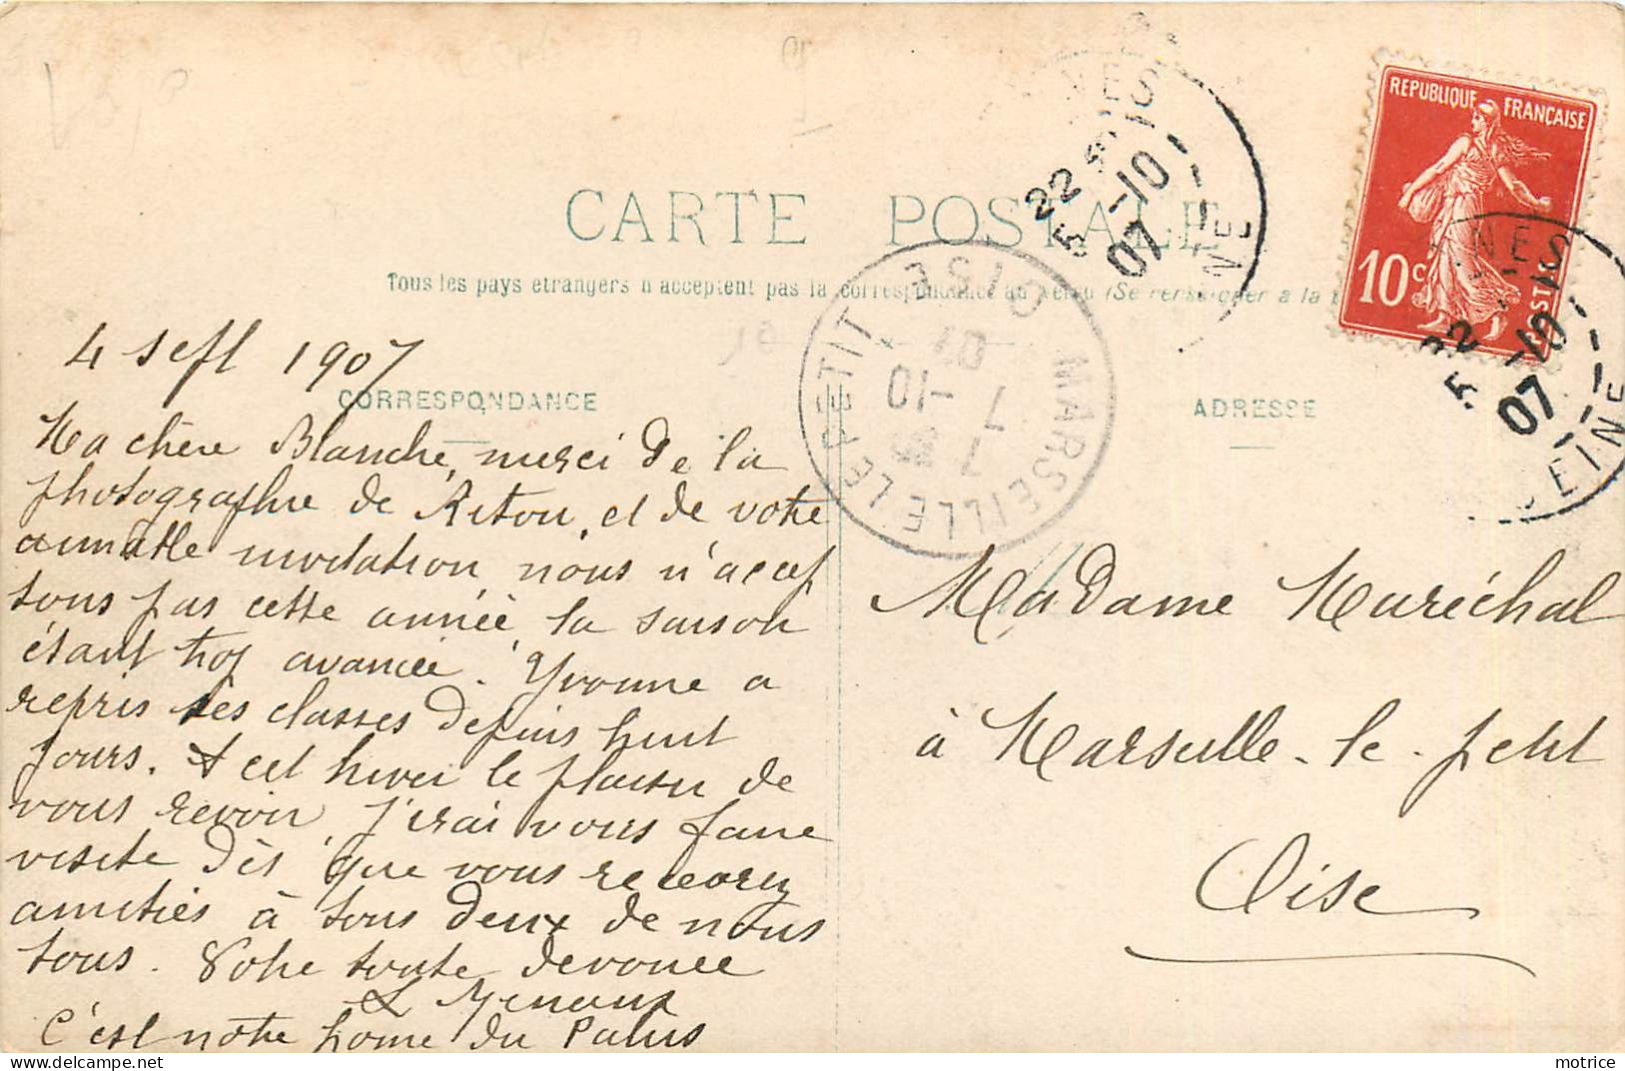 CARTE POSTALE
Tous les pays étrangers n'acceptent pas la correspondance au verso (Se renseigner à la
REPUBLIQUE FRANÇAISE
10c
POSTES
22
5 -10
07
SEINE
22
5 -10
07
SEINE
MARSEILLE LE PETIT OISE
7 -10
07
4 Sept 1907
CORRESPONDANCE
Ma chère Blanche, merci de la
photographie de et de votre
aimable invitation, nous n'accep
tons pas cette année, la saison
étant trop avancée. Yvonne a
repris ses classes depuis huit
jours. A cet hiver le plaisir de
vous revoir, J'irai vous faire
visite dès que vous recevrez
amitiés à tous deux de nous
tous. Votre toute dévouée
C'est notre home du
ADRESSE
Madame Maréchal
à Marseille-le-petit
Oise
motrice